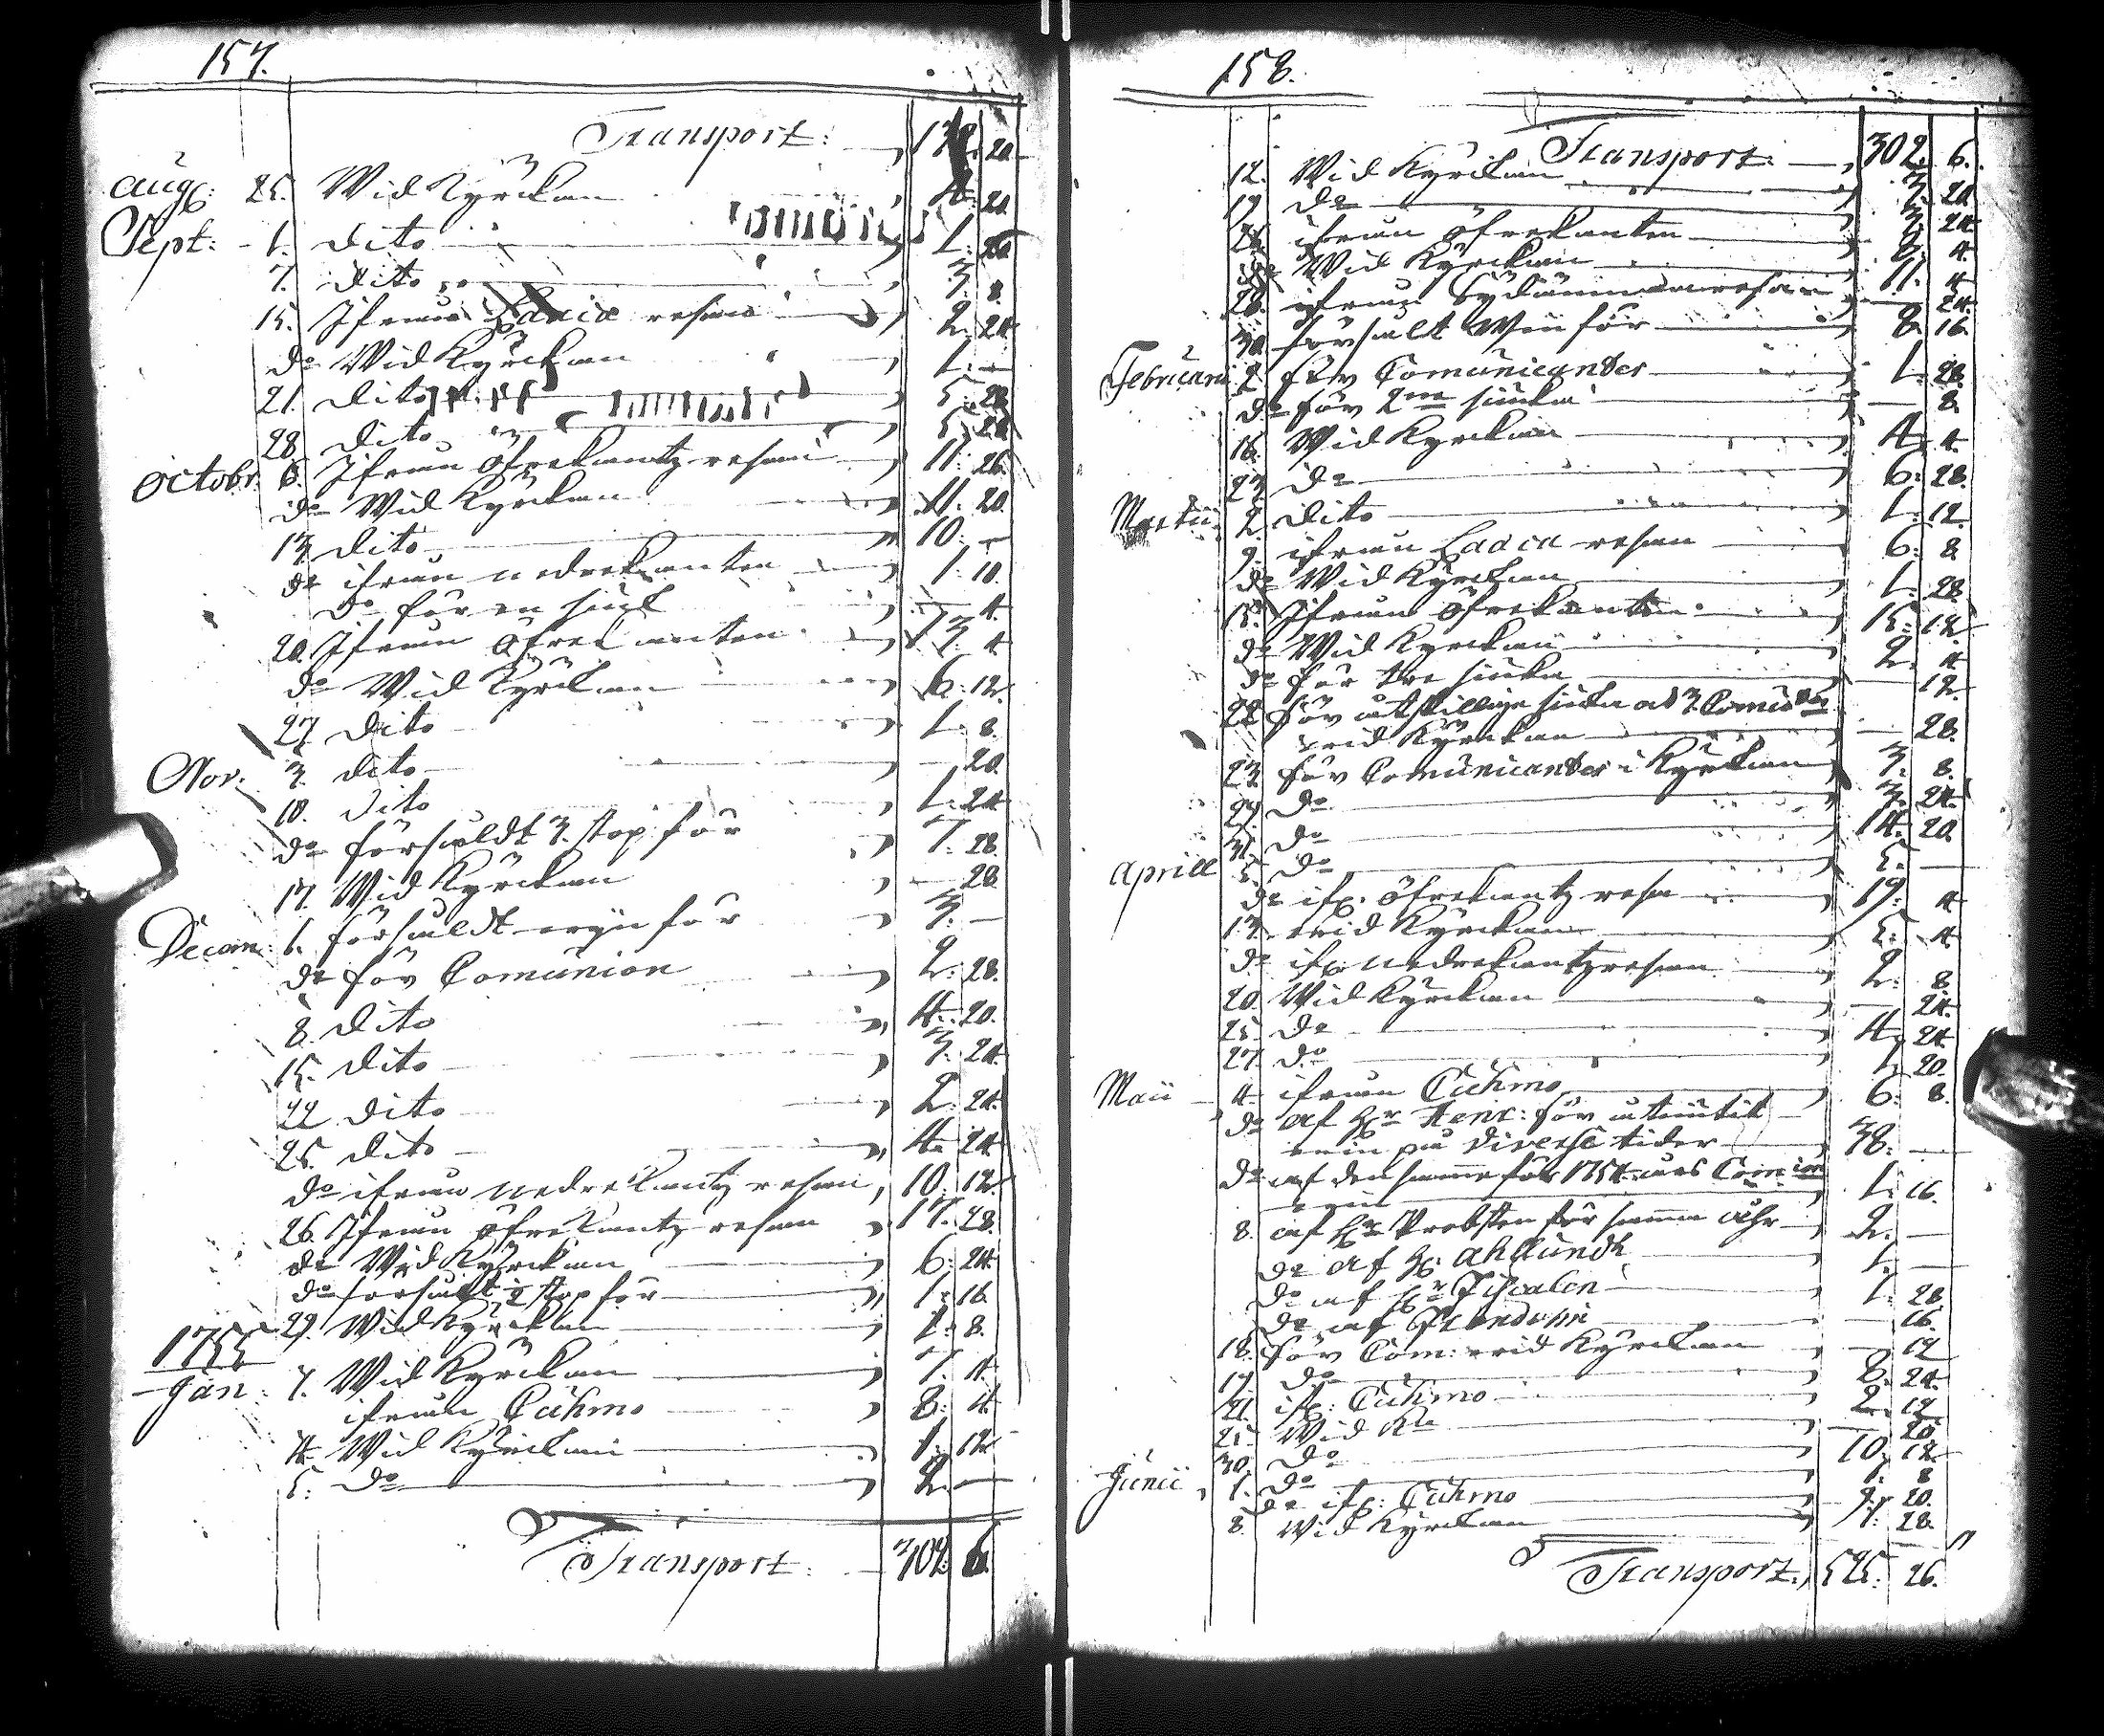 157.
Transport: 20.
Aug: 25. Wid Kyrckan 4. 20.
Sept: 1. dito 1. 20.
7. dito 3. 8.
15. Ifrån resan 2. 24.
do Wid Kyrckan 1. —
21. dito 5. 28.
28. dito 5. 28.
Octobr. 6. Ifrån öfrekantz resan 11. 26.
do Wid Kyrckan 11. 20.
13. dito 10. —
do ifrån nedrekanten 1. 10.
do för en siuk — 4.
20. Ifrån öfrekanten 13. 4.
do Wid Kyrckan 6. 12.
27. dito 1. 8.
Nov: 3. dito — 20.
10. dito 1. 24.
do försåldt 3. stop för 7. 28.
17. Wid Kyrckan — 28.
Decem: 1. försåldt wijn för 3. —
do för Comunion 2. 28.
8. dito 4. 20.
15. dito 3. 24.
22. dito 2. 24.
25. dito 4. 24.
do ifrån nedrekantz resan 10. 12.
26. Ifrån öfrekantz resan 17. 28.
do Wid Kyrckan 6. 24.
do försålt ½ stop för 1. 16.
29. Wid Kyrckan 1. 8.
1755
Jan: 1. Wid Kyrckan 7. 4.
ifrån Cuhmo 8. 4.
4. Wid Kyrckan 1. 12.
5. do 2. —
Transport: 302. 6.
158.
Transport: 302. 6.
12. Wid Kyrckan 3. 20.
19. do 3. 24.
26. ifrån öfrekanten 4.
do Wid Kyrckan 11. 4.
28. ifrån — 24.
30. försålt Win för 8. 16.
Februarii 2. för Comunicanter 1. 28.
do för 2ne siuka — 8.
16. Wid Kyrckan 4. 4.
23. do 6. 28.
Martii 2. dito 1. 12.
9. ifrån resan 6. 8.
do Wid Kyrckan 1. 28.
15. Ifrån öfrekanten 15. 12.
do Wid Kyrckan 2. 4.
do för tre siuka — 12.
22. för åtskillige siuka
wid Kyrckan — 28.
23. för Comunicanter i Kyrckan 3. 8.
27. do 3. 24.
31. do 14. 20.
Aprill 5. do 5. —
do ifr. öfrekantz resa 19. 4.
13. wid Kyrckan 5. 4.
do ifr. nedrekantz resan 2. 8.
20. Wid Kyrckan — 24.
25. do 4. 24.
27. do 1. 20.
Maii 4. ifrån Cuhmo 6. 8.
do af Hr Henr: för
win på diverse tider 38. —
do af den samme för 1754 års
1. 16.
8. af Hr Probsten för samma åhr 2. —
do af H. Ahllundh 1. —
do af Hr Fiscalen 1. 28.
do af — 16.
18. för Com: wid Kyrckan — 12.
19. do 8. 24.
21. ifr: Cuhmo 2. 12.
25. Wid — 20.
30. do 10. 12.
Junii 1. do 1. 8.
do ifr: Cuhmo 20.
8. Wid Kyrckan 28.
Transport: 525. 26.